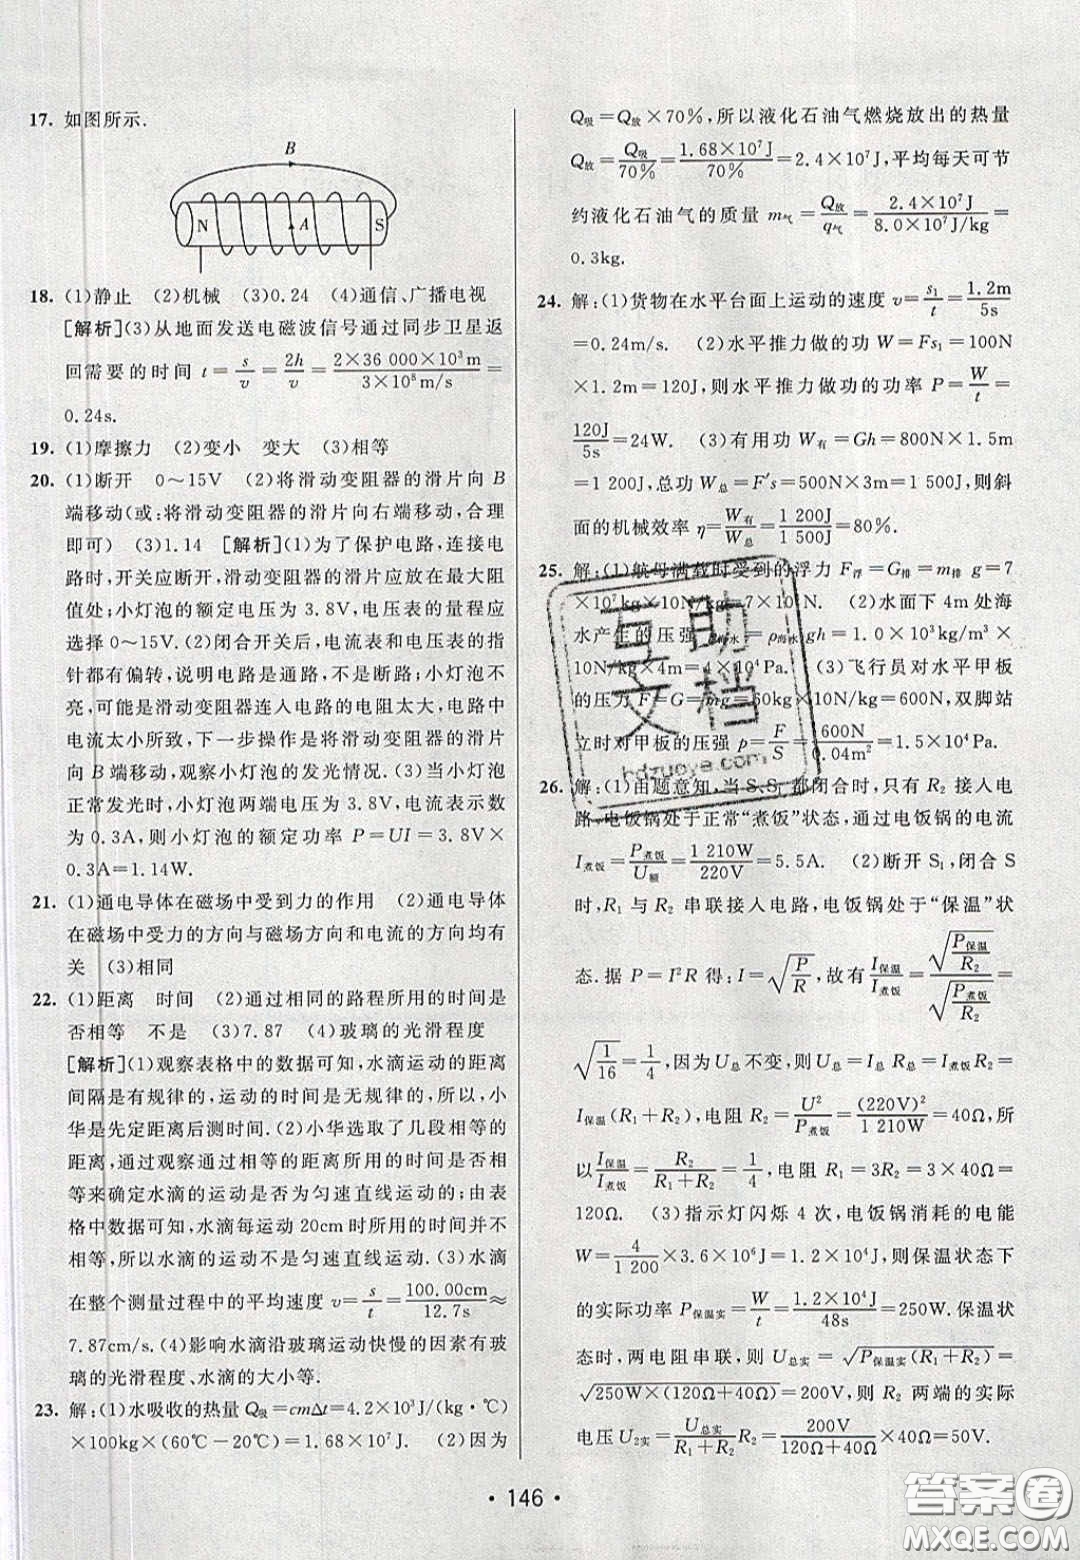 17. 如图所示.
B
N
A
S
18. (1)静止 (2)机械 (3)0.24 (4)通信、广播电视
[解析](3)从地面发送电磁波信号通过同步卫星返
回需要的时间 t=s/v=2h/v=(2×36 000×10³m)/(3×10⁸m/s)=
0.24s.
19. (1)摩擦力 (2)变小 变大 (3)相等
20. (1)断开 0～15V (2)将滑动变阻器的滑片向 B
端移动(或:将滑动变阻器的滑片向右端移动,合理
即可) (3)1.14 [解析](1)为了保护电路,连接电
路时,开关应断开,滑动变阻器的滑片应放在最大阻
值处;小灯泡的额定电压为 3.8V,电压表的量程应
选择 0～15V.(2)闭合开关后,电流表和电压表的指
针都有偏转,说明电路是通路,不是断路;小灯泡不
亮,可能是滑动变阻器连入电路的电阻太大,电路中
电流太小所致,下一步操作是将滑动变阻器的滑片
向 B 端移动,观察小灯泡的发光情况.(3)当小灯泡
正常发光时,小灯泡两端电压为 3.8V,电流表示数
为 0.3A,则小灯泡的额定功率 P=UI=3.8V×
0.3A=1.14W.
21. (1)通电导体在磁场中受到力的作用 (2)通电导体
在磁场中受力的方向与磁场方向和电流的方向均有
关 (3)相同
22. (1)距离 时间 (2)通过相同的路程所用的时间是
否相等 不是 (3)7.87 (4)玻璃的光滑程度
[解析](1)观察表格中的数据可知,水滴运动的距离
间隔是有规律的,运动的时间是无规律的,所以,小
华是先定距离后测时间.(2)小华选取了几段相等的
距离,通过观察通过相等的距离所用的时间是否相
等来确定水滴的运动是否为匀速直线运动;由表
格中数据可知,水滴每运动 20cm 时所用的时间并不
相等,所以水滴的运动不是匀速直线运动.(3)水滴
在整个测量过程中的平均速度 v=s/t=100.00cm/12.7s≈
7.87cm/s.(4)影响水滴沿玻璃运动快慢的因素有玻
璃的光滑程度、水滴的大小等.
23. 解:(1)水吸收的热量 Q吸=cmΔt=4.2×10³J/(kg·℃)
×100kg×(60℃－20℃)=1.68×10⁷J. (2)因为
Q吸=Q放×70%,所以液化石油气燃烧放出的热量
Q放=Q吸/70%=1.68×10⁷J/70%=2.4×10⁷J,平均每天可节
约液化石油气的质量 m气=Q放/q气=2.4×10⁷J/(8.0×10⁷J/kg)=
0.3kg.
24. 解:(1)货物在水平台面上运动的速度 v=s₁/t=1.2m/5s
=0.24m/s. (2)水平推力做的功 W=Fs₁=100N
×1.2m=120J,则水平推力做功的功率 P=W/t=
120J/5s=24W. (3)有用功 W有=Gh=800N×1.5m
=1 200J,总功 W总=F′s=500N×3m=1 500J,则斜
面的机械效率 η=W有/W总=1 200J/1 500J=80%.
25. 解:(1)航母满载时受到的浮力 F浮=G排=m排 g=7
×10⁷kg×10N/kg=7×10⁸N. (2)水面下 4m 处海
水产生的压强 p海水=ρ海水gh=1.0×10³kg/m³×
10N/kg×4m=4×10⁴Pa. (3)飞行员对水平甲板
的压力 F=G=mg=60kg×10N/kg=600N,双脚站
立时对甲板的压强 p=F/S=600N/0.04m²=1.5×10⁴Pa.
26. 解:(1)由题意知,当 S、S₁ 都闭合时,只有 R₂ 接入电
路,电饭锅处于正常“煮饭”状态,通过电饭锅的电流
I煮饭=P煮饭/U额=1 210W/220V=5.5A. (2)断开 S₁,闭合 S
时,R₁ 与 R₂ 串联接入电路,电饭锅处于“保温”状
态.据 P=I²R 得:I=√(P/R),故有 I保温/I煮饭=√(P保温/R₂)/√(P煮饭/R₂)=
√(1/16)=1/4,因为 U总 不变,则 U总=I总 R总=I煮饭R₂=
I保温(R₁+R₂),电阻 R₂=U²/P煮饭=(220V)²/1 210W=40Ω,所
以 I保温/I煮饭=R₂/(R₁+R₂)=1/4,电阻 R₁=3R₂=3×40Ω=
120Ω. (3)指示灯闪烁 4 次,电饭锅消耗的电能
W=4/1 200×3.6×10⁶J=1.2×10⁴J,则保温状态下
的实际功率 P保温实=W/t=1.2×10⁴J/48s=250W.保温状
态时,两电阻串联,U总实=√(P保温实(R₁+R₂))=
√(250W×(120Ω+40Ω))=200V,所以 R₂ 两端的实际
电压 U₂实=U总实/(R₁+R₂) R₂=200V/(120Ω+40Ω)×40Ω=50V.
互助
文档
hdzuoye.com
• 146 •
答案圈
MXQE.COM